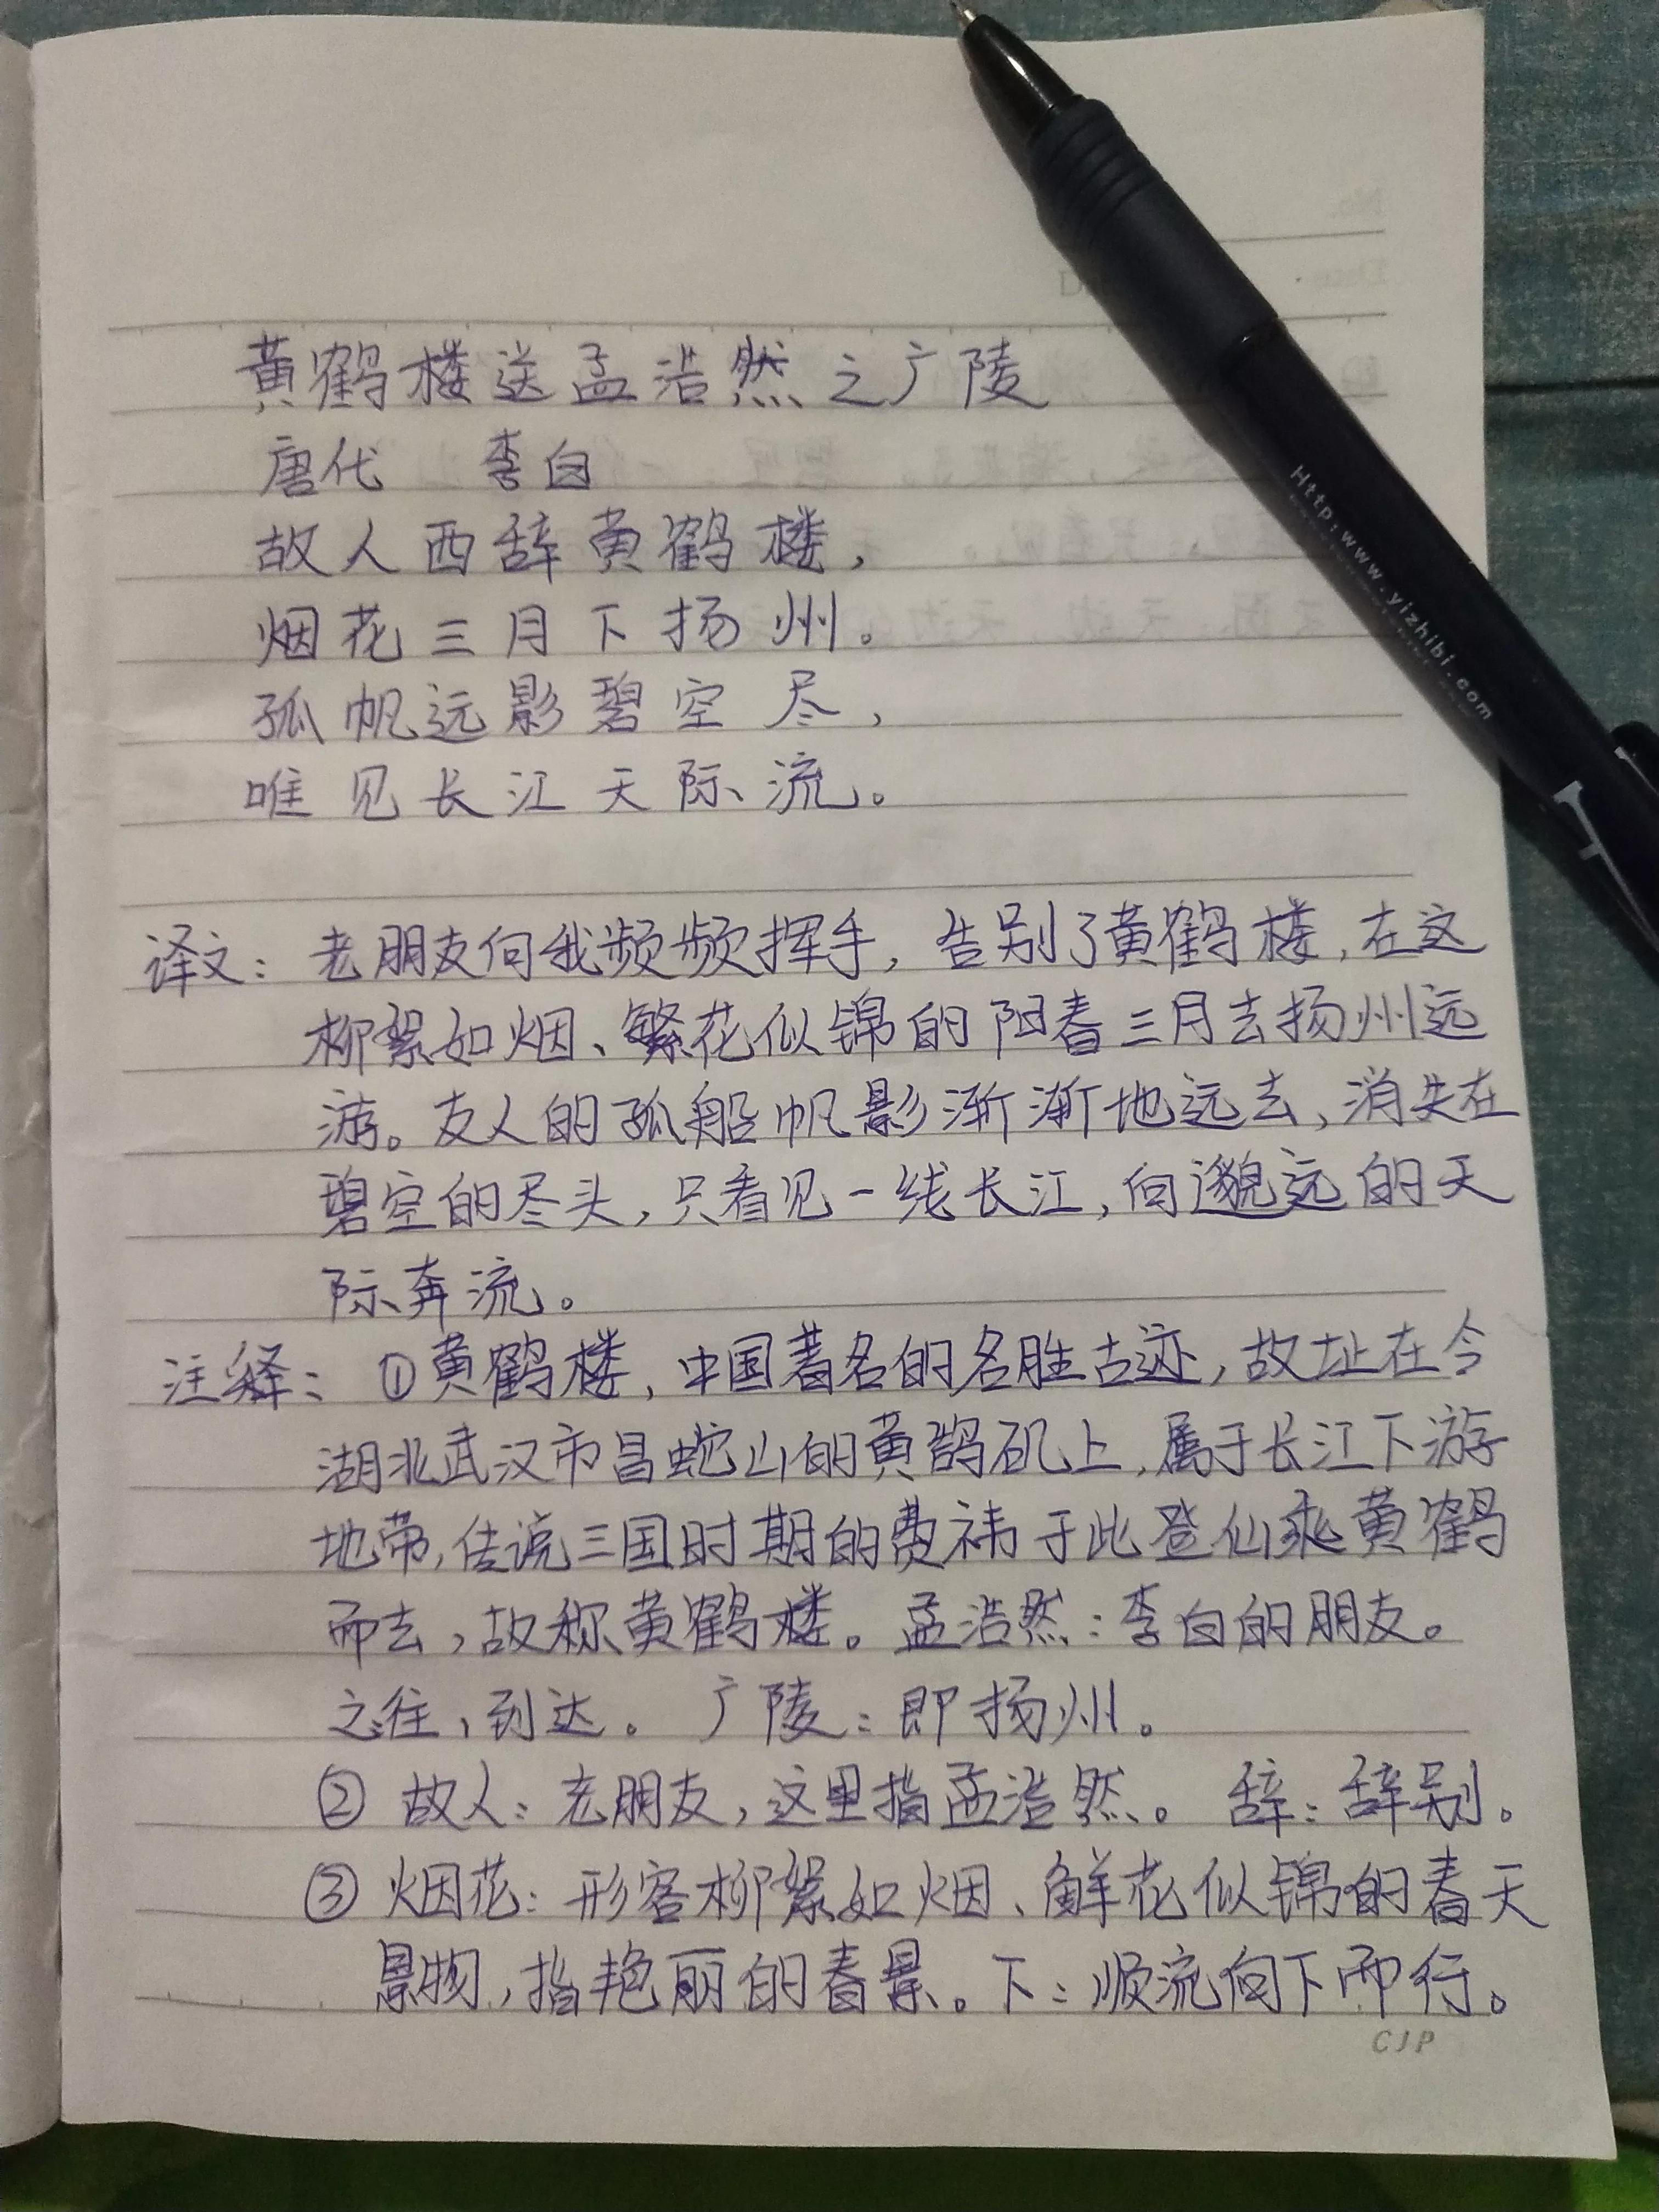 黄鹤楼送孟浩然之广陵
唐代 李白
故人西辞黄鹤楼，
烟花三月下扬州。
孤帆远影碧空尽，
唯见长江天际流。
译文：老朋友向我频频挥手，告别了黄鹤楼，在这
柳絮如烟、繁花似锦的阳春三月去扬州远
游。友人的孤船帆影渐渐地远去，消失在
碧空的尽头，只看见一线长江，向邈远的天
际奔流。
注释：①黄鹤楼，中国著名的名胜古迹，故址在今
湖北武汉市昌蛇山的黄鹄矶上，属于长江下游
地带，传说三国时期的费祎于此登仙乘黄鹤
而去，故称黄鹤楼。孟浩然：李白的朋友。
之：往，到达。广陵：即扬州。
②故人：老朋友，这里指孟浩然。辞：辞别。
③烟花：形容柳絮如烟、鲜花似锦的春天
景物，指艳丽的春景。下：顺流向下而行。
CJP
Http:www.yizhibi.com